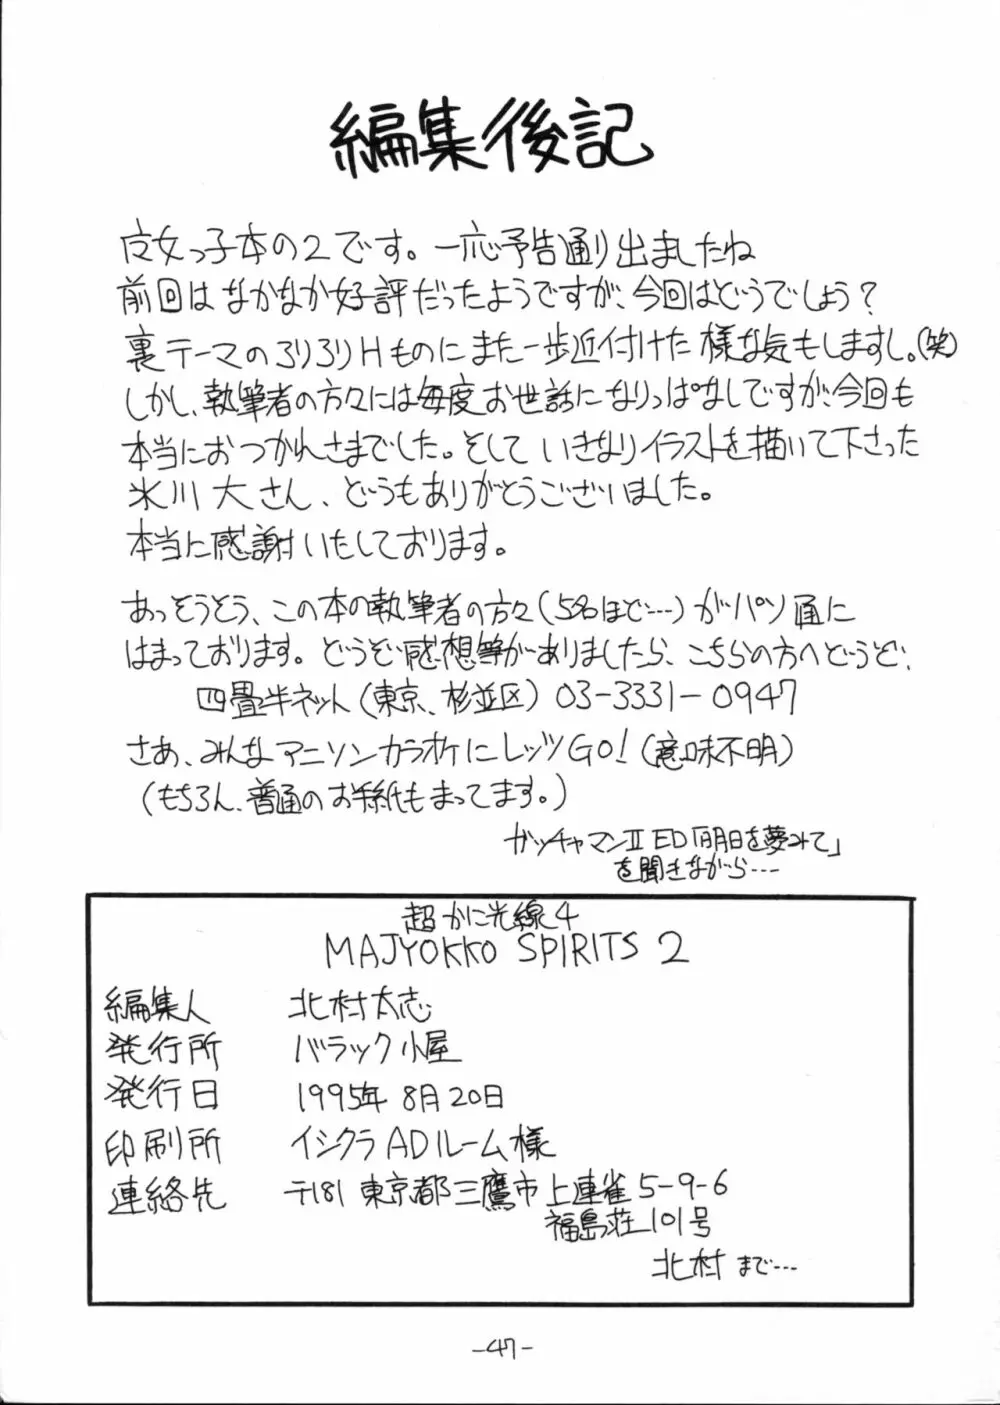 編集後記
魔女っ子本の2です。一応予告通り出ましたね
前回はなかなか好評だったようですが、今回はどうでしょう?
裏テーマのろりろりHものにまた一歩近付けた様な気もしますし。(笑)
しかし、執筆者の方々には毎度お世話になりっぱなしですが、今回も
本当におつかれさまでした。そして いきなりイラストを描いて下さった
氷川大さん、どうもありがとうございました。
本当に感謝いたしております。
あっそうそう、この本の執筆者の方々(5名ほど…)がパソ通に
はまっております。どうぞ感想等がありましたら、こちらの方へどうぞ、
四畳半ネット(東京、杉並区) 03-3331-0947
さあ、みんなアニソンカラオケにレッツGO!(意味不明)
(もちろん、普通のお手紙もまってます。)
ガッチャマンII ED「明日を夢みて」
を聞きながら…
超かに光線4
MAJYOKKO SPIRITS 2
編集人 北村太志
発行所 バラック小屋
発行日 1995年 8月20日
印刷所 イシクラADルーム様
連絡先 〒181 東京都三鷹市上連雀5-9-6
福島荘101号
北村まで…
-47-